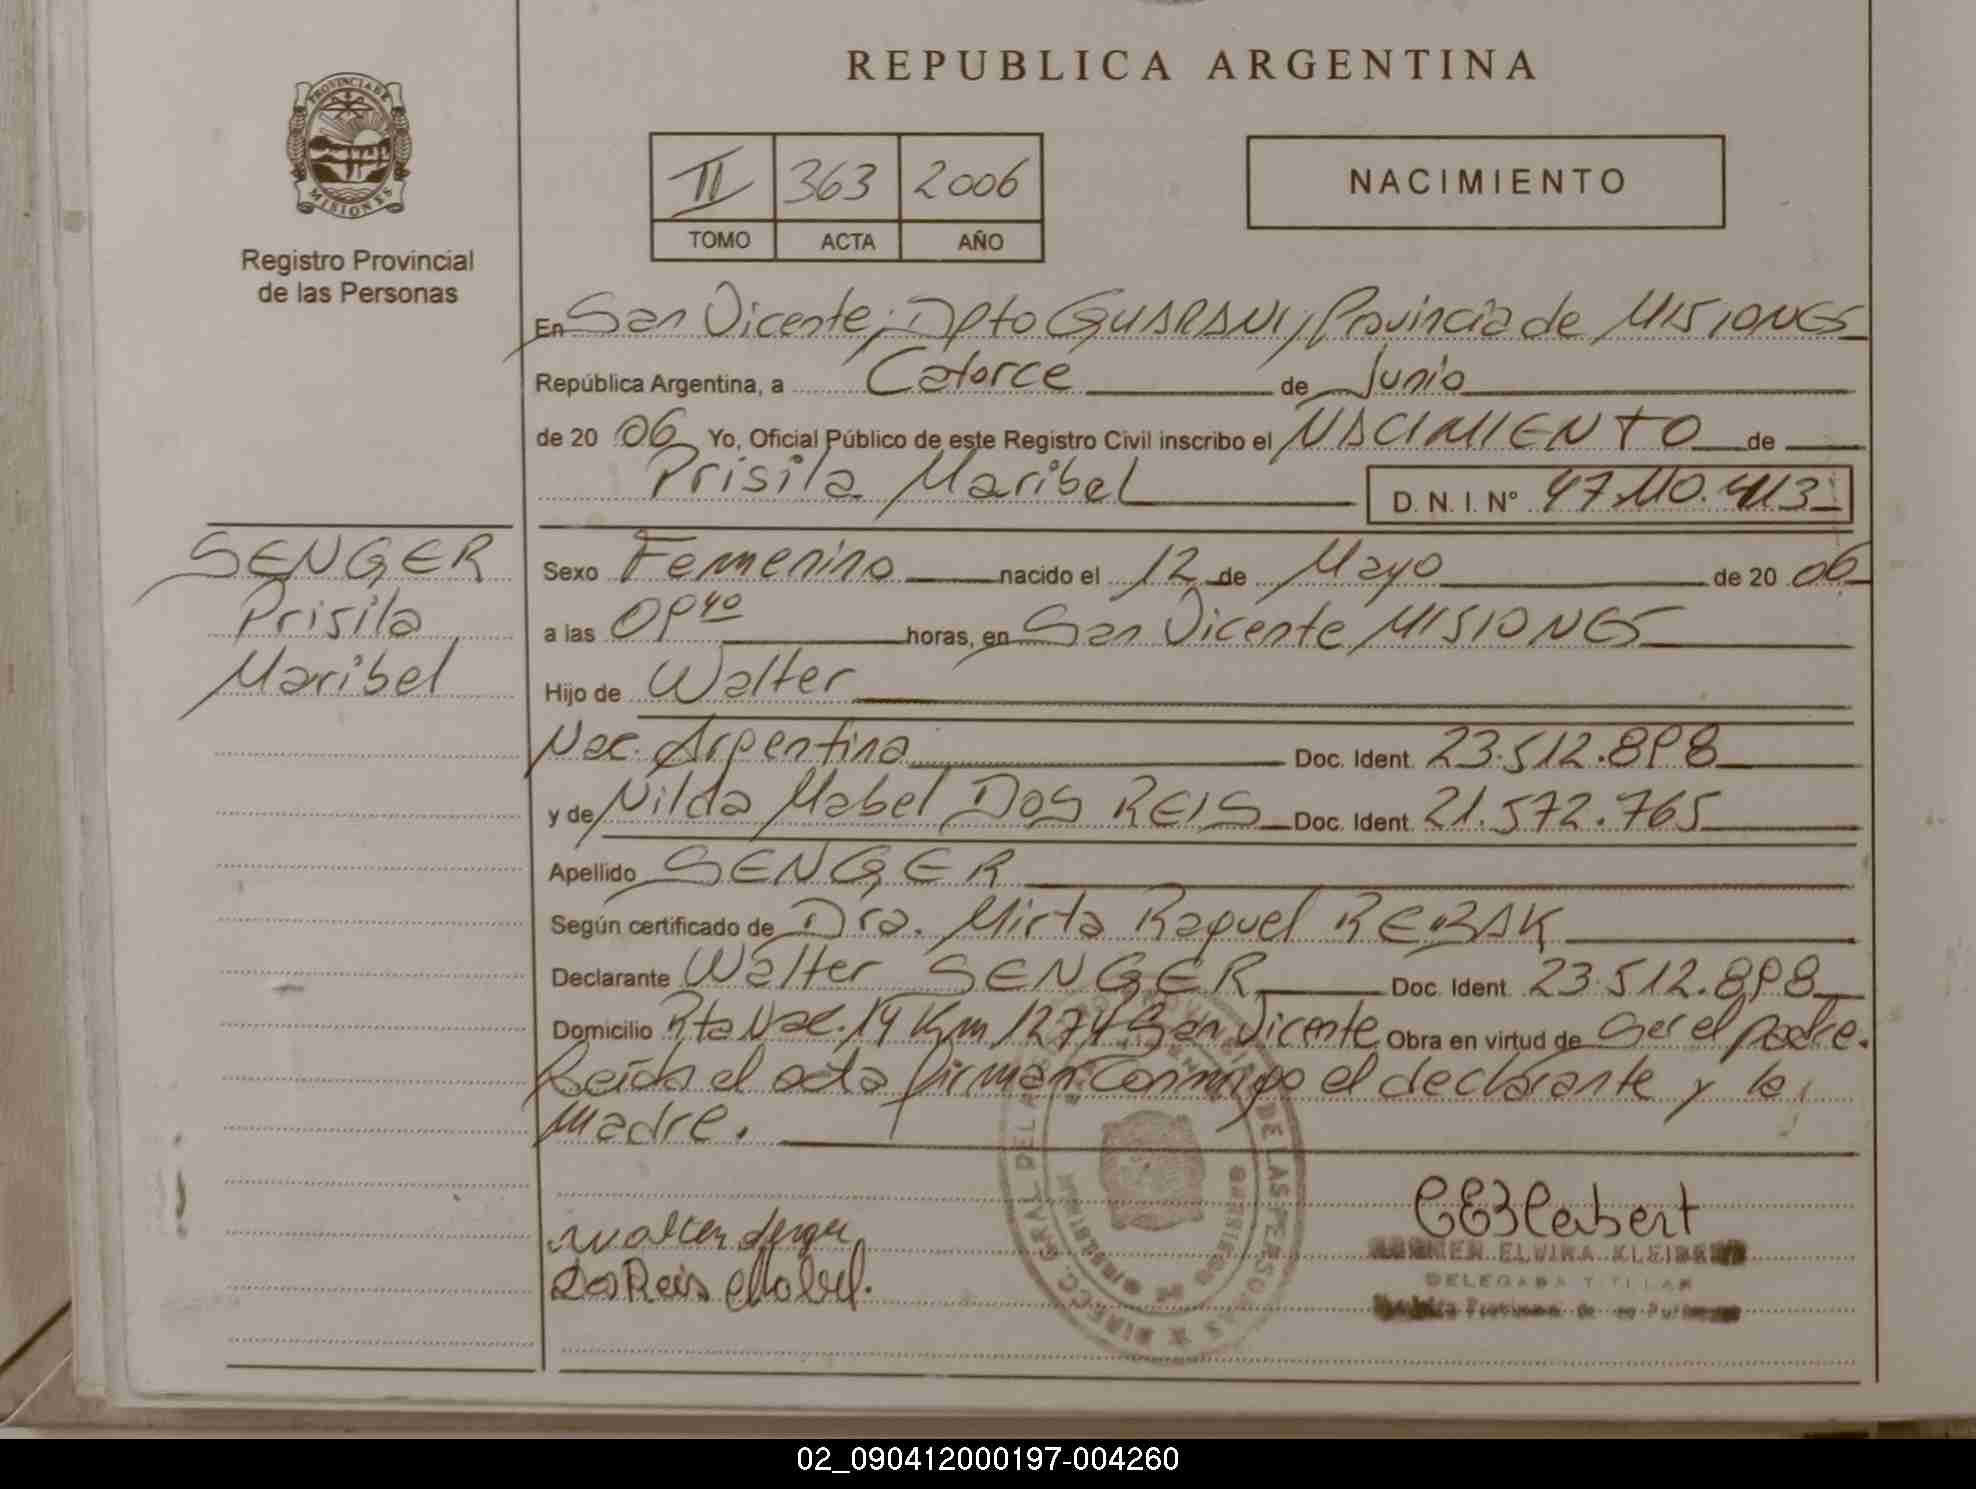 REPUBLICA ARGENTINA
PROVINCIA DE MISIONES
Registro Provincial
de las Personas
II 363 2006
TOMO ACTA AÑO
NACIMIENTO
En San Vicente, Dpto GUARANI, Provincia de MISIONES
República Argentina, a Catorce de Junio
de 20 06 Yo, Oficial Público de este Registro Civil inscribo el NACIMIENTO de
Prisila Maribel D. N. I. Nº 47.110.413
SENGER
Prisila
Maribel
Sexo Femenino nacido el 12 de Mayo de 20 06
a las 09 40 horas, en San Vicente MISIONES
Hijo de Walter
Nac. Argentina Doc. Ident. 23.512.898
y de Nilda Mabel DOS REIS Doc. Ident. 21.572.765
Apellido SENGER
Según certificado de Dra. Mirta Raquel REBAK
Declarante Walter SENGER Doc. Ident. 23.512.898
Domicilio Rta Nac. 14 Km 1274 San Vicente Obra en virtud de Ser el padre.
Leída el acta firman conmigo el declarante y la
madre.
Walter Senger
Dos Reis Mabel.
ELVIRA KLEIBERT
DELEGADA TITULAR
02_090412000197-004260